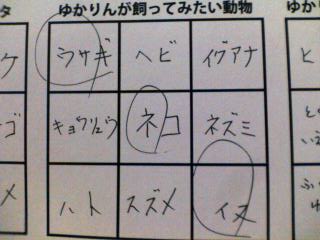 タ
ゆかりんが飼ってみたい動物
ゆかり
ケ
ウサギ
ヘビ
イグアナ
ヒ
ゴ
キョウリュウ
ネコ
ネズミ
メ
ハト
スズメ
イヌ